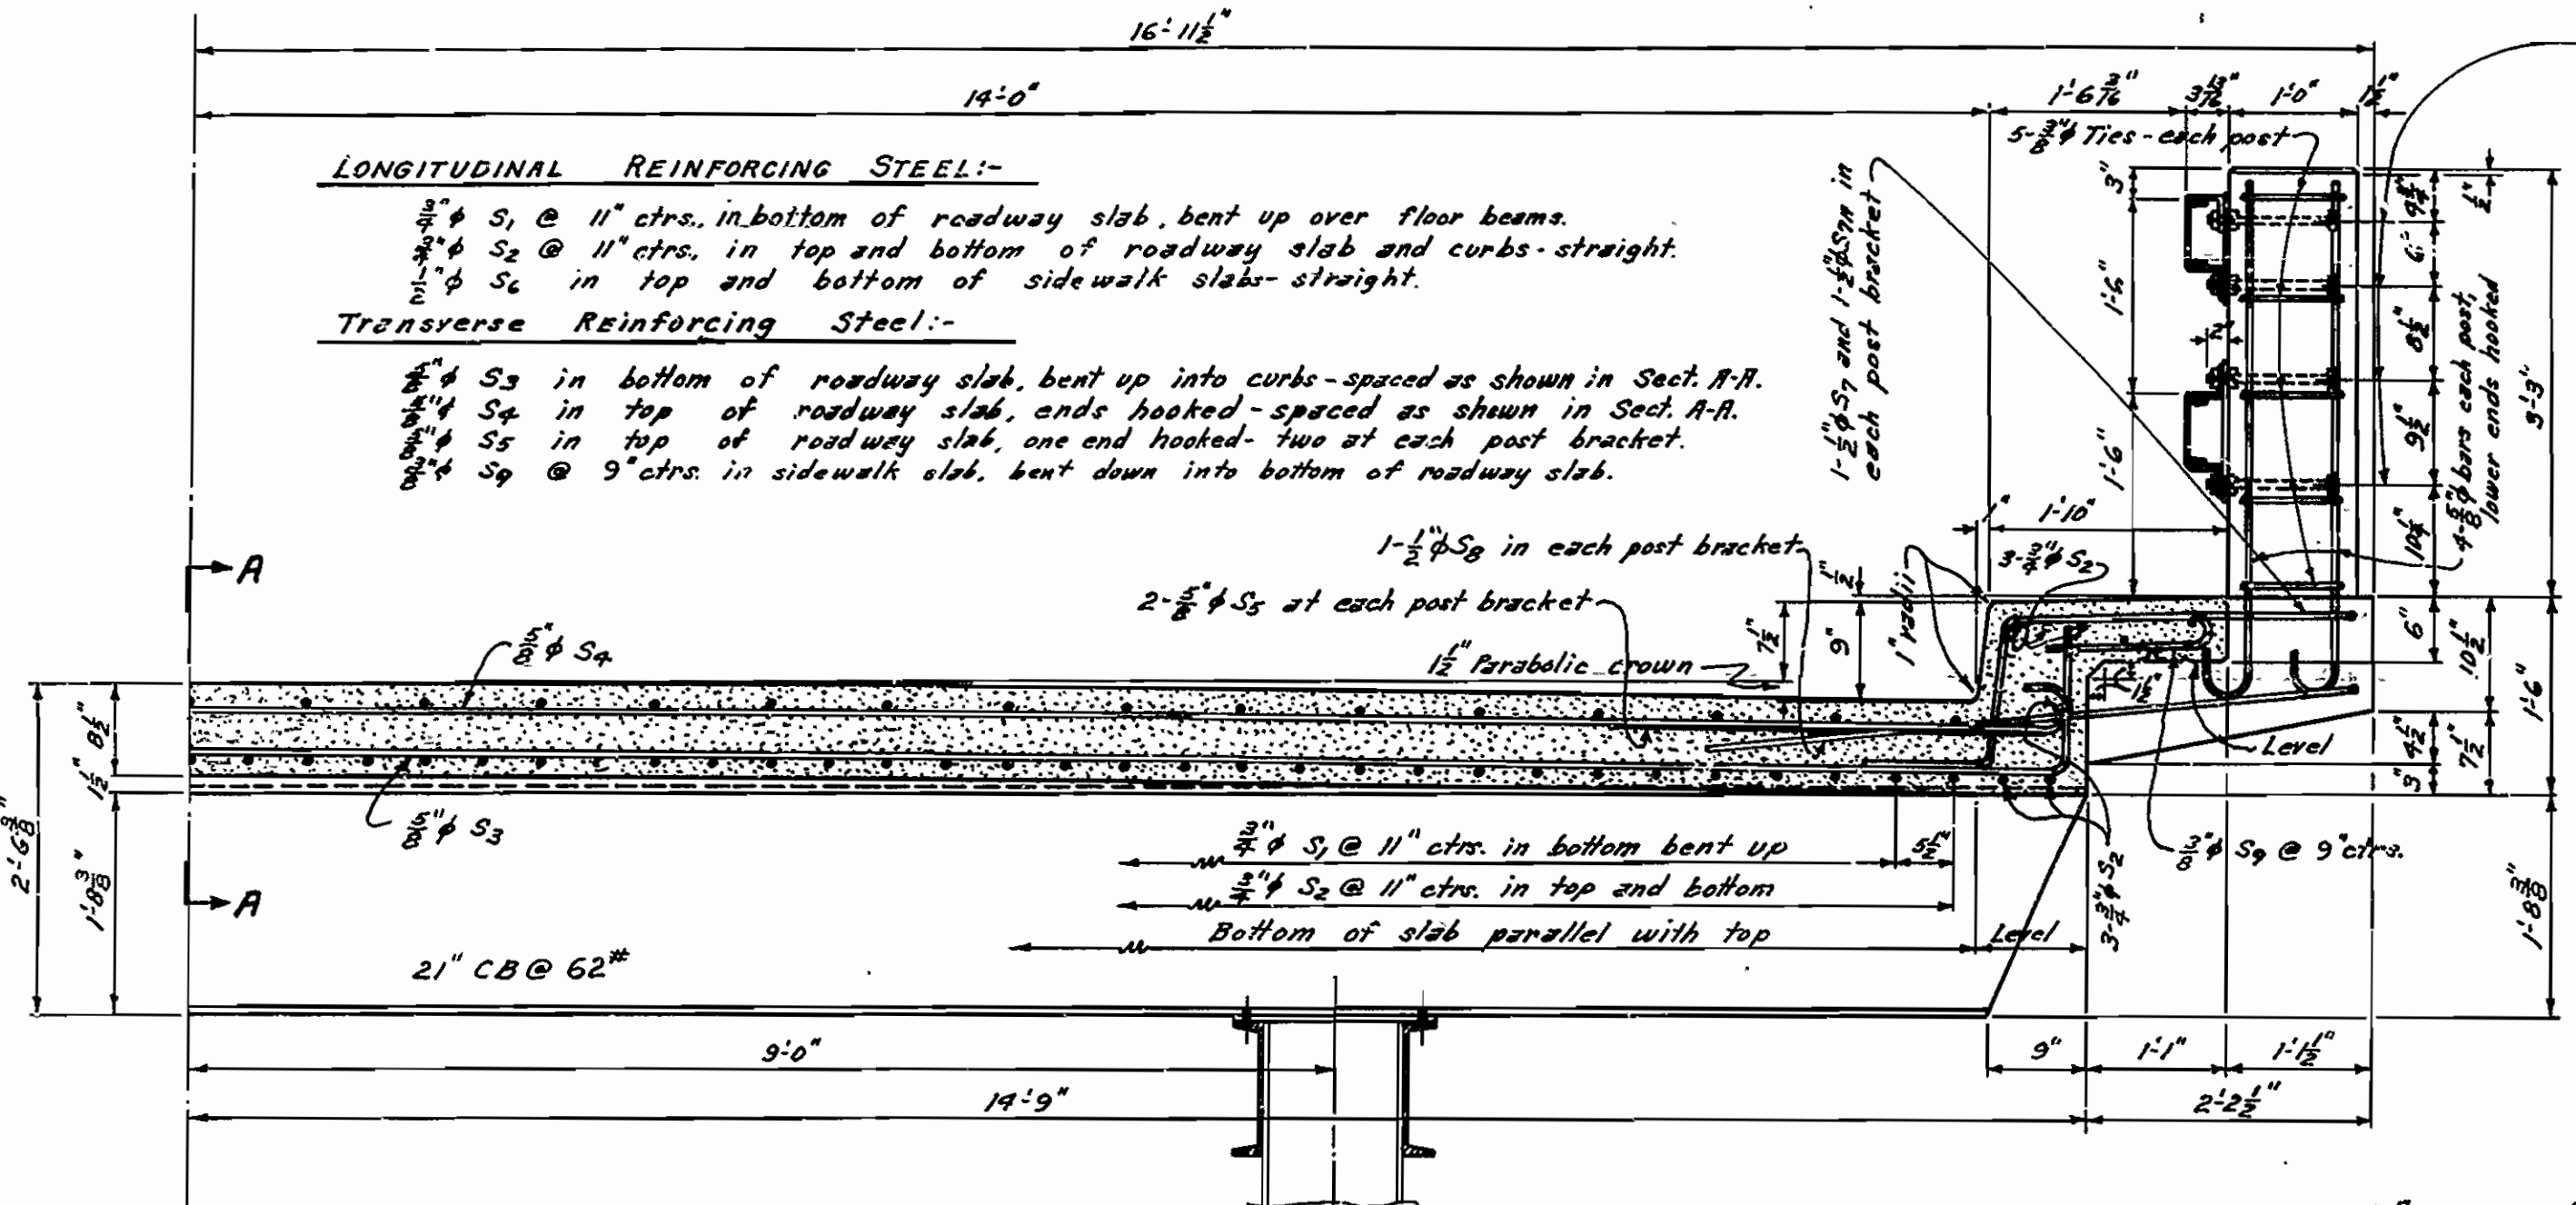 16'-11½"
14'-0"
1'-6 3/16"
3 13/16"
1'-0"
1½"
5-⅜"φ Ties - each post
LONGITUDINAL REINFORCING STEEL:-
¾"φ S1 @ 11" ctrs., in bottom of roadway slab, bent up over floor beams.
¾"φ S2 @ 11" ctrs. in top and bottom of roadway slab and curbs - straight.
½"φ S6 in top and bottom of sidewalk slabs - straight.
Transverse Reinforcing Steel:-
⅝"φ S3 in bottom of roadway slab, bent up into curbs - spaced as shown in Sect. A-A.
⅝"φ S4 in top of roadway slab, ends hooked - spaced as shown in Sect. A-A.
⅝"φ S5 in top of roadway slab, one end hooked - two at each post bracket.
⅜"φ S9 @ 9" ctrs. in sidewalk slab, bent down into bottom of roadway slab.
1-½"φ S7 and 1-½"φ S7A in
each post bracket
3"
1'-6"
1'-6"
2"
4¾"
6"
8½"
9½"
10¼"
½"
3'-3"
4-⅝"φ bars each post,
lower ends hooked
1"
1'-10"
1-½"φ S8 in each post bracket
3-¾"φ S2
2-⅝"φ S5 at each post bracket
1½" Parabolic crown
1½"
7½"
9"
1" radii
A
⅝"φ S4
8½"
1½"
2'-6⅜"
1'-8⅜"
⅝"φ S3
A
1½"
6"
10½"
4½"
7½"
3"
1'-6"
Level
¾"φ S1 @ 11" ctrs. in bottom bent up
5½"
¾"φ S2 @ 11" ctrs. in top and bottom
Bottom of slab parallel with top
Level
3-¾"φ S2
⅜"φ S9 @ 9" ctrs.
1'-8⅜"
21" CB @ 62#
9'-0"
9"
1'-1"
1'-1½"
14'-9"
2'-2½"